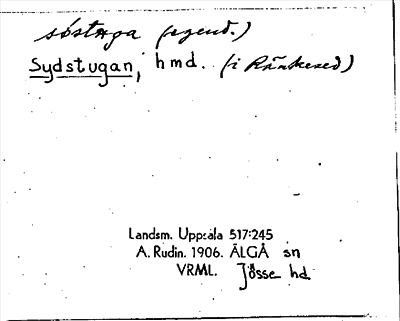 söstuga (egend.)
Sydstugan, hmd. (i Ränkesed)
Landsm. Uppsala 517:245
A. Rudin. 1906. ÄLGÅ sn
VRML. Jösse hd